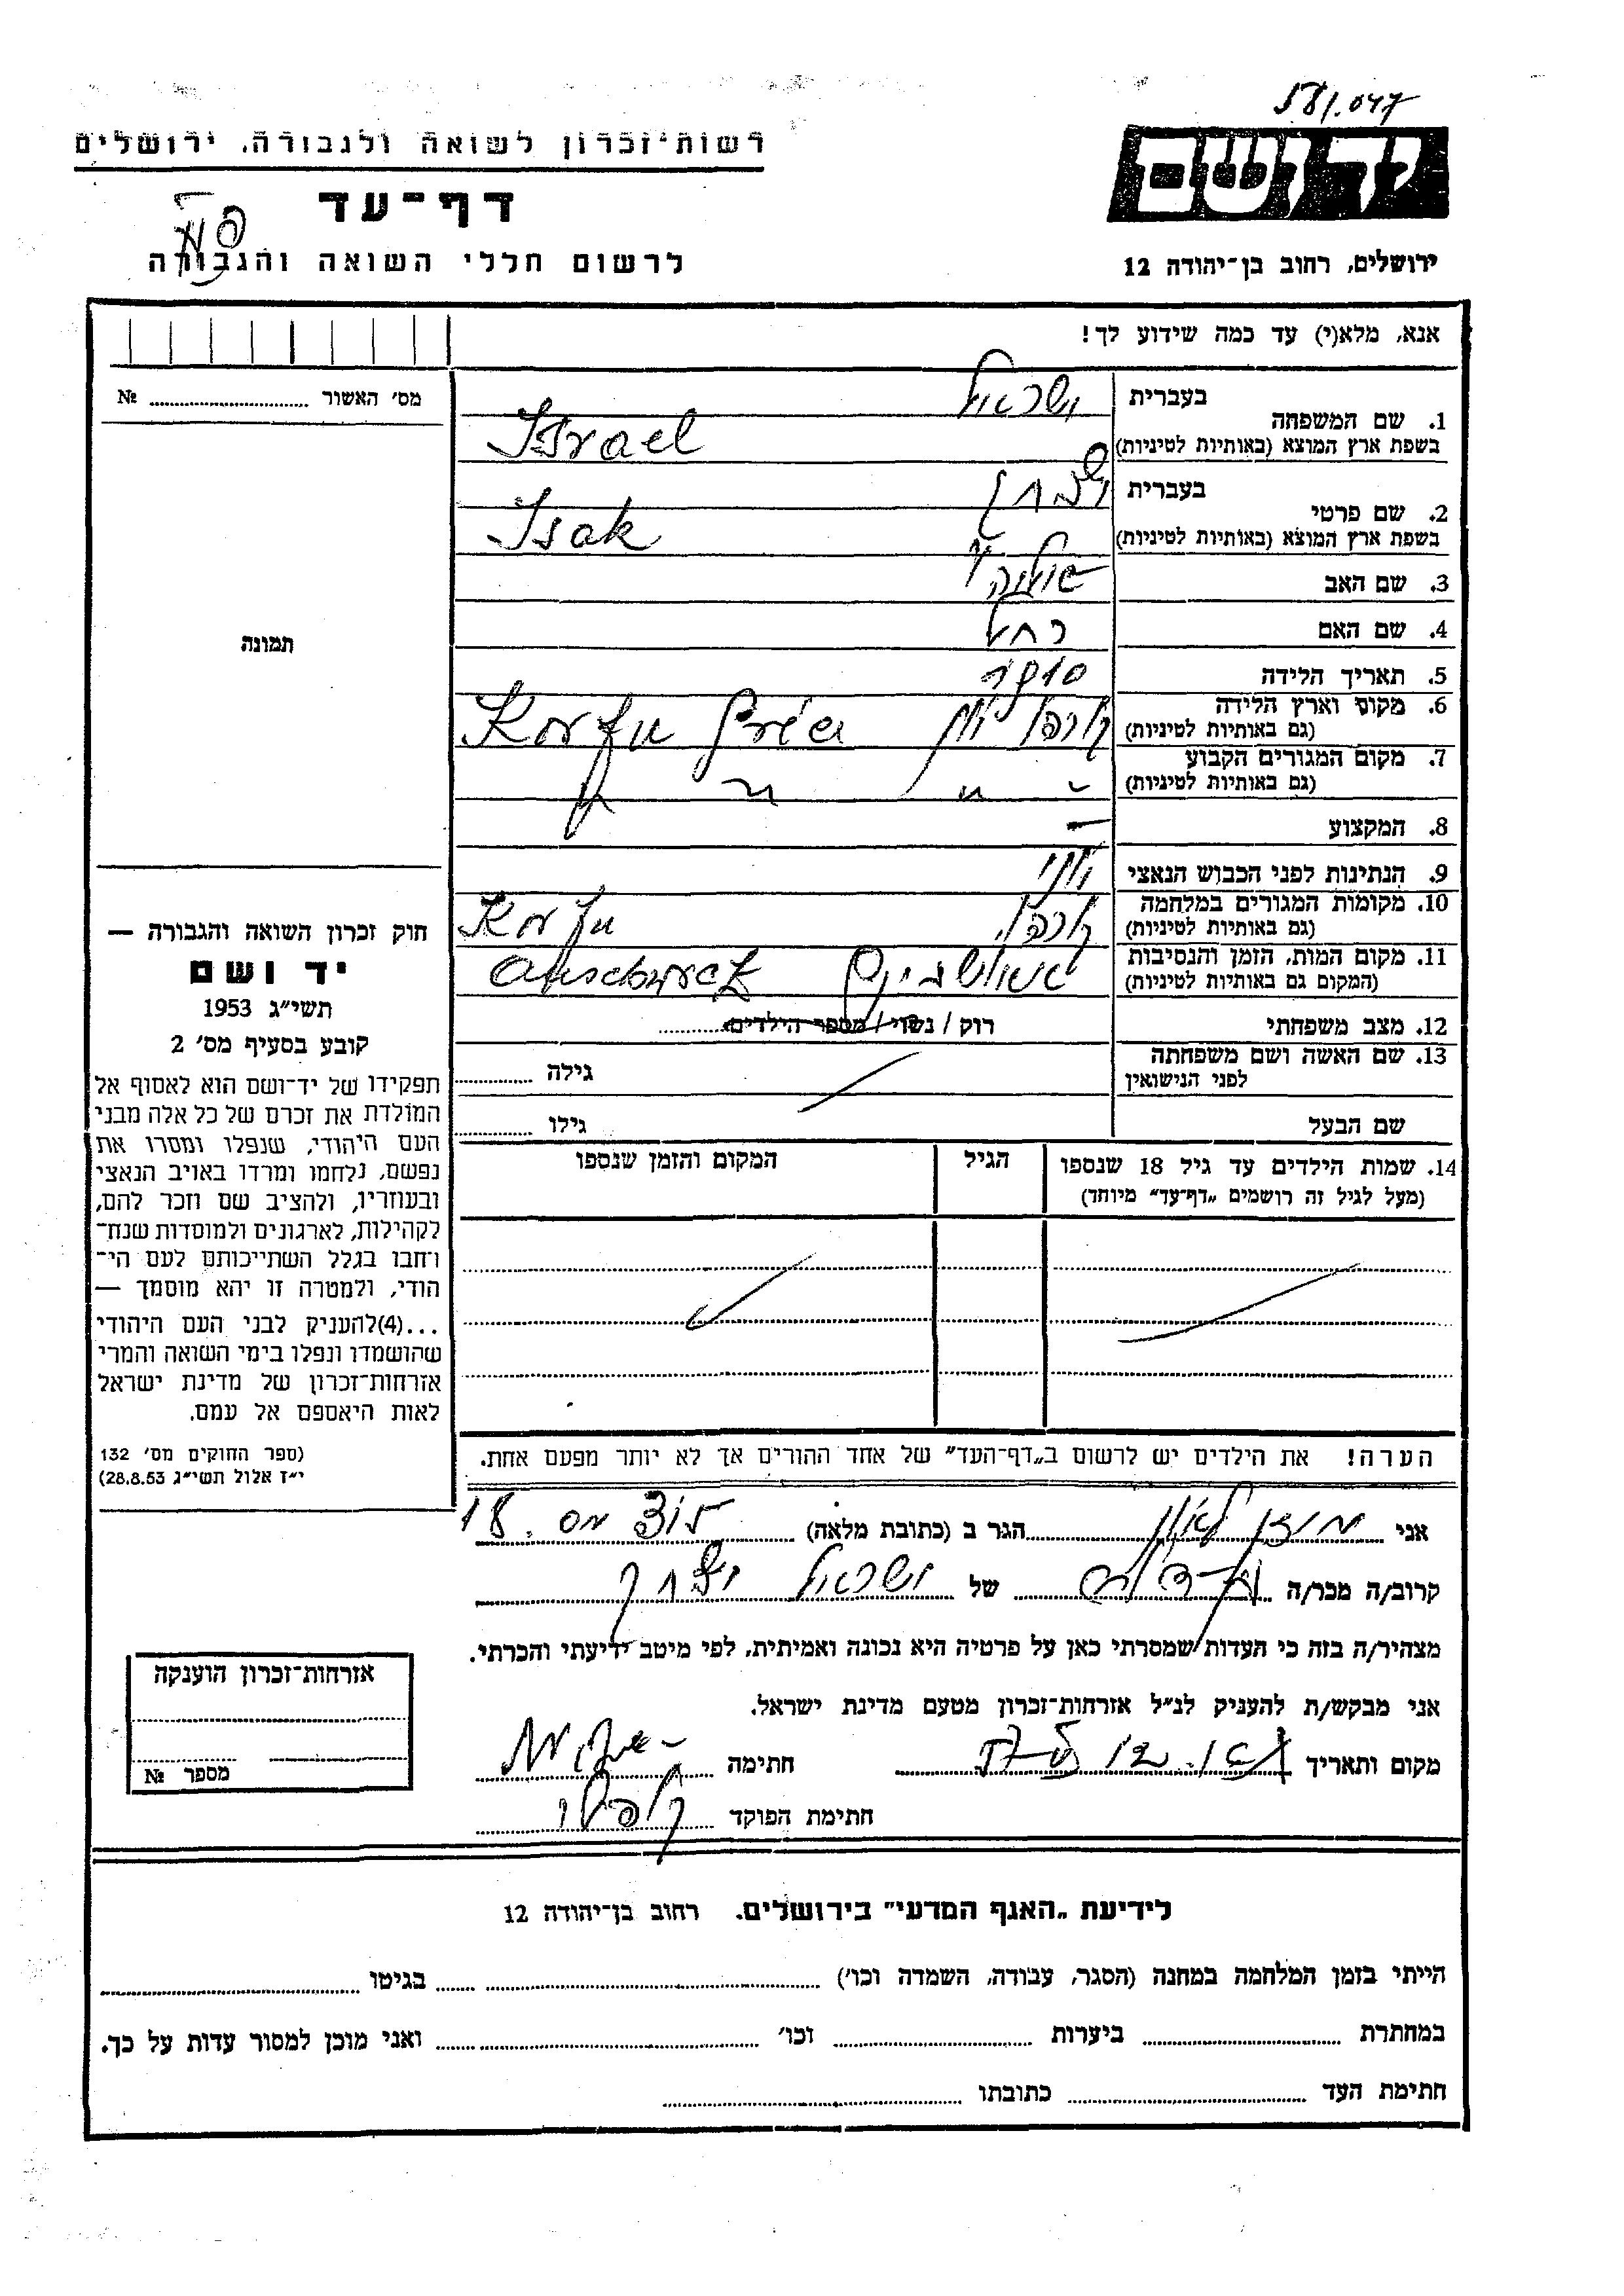 581.047
רשות־זכרון לשואה ולגבורה, ירושלים
יד ושם
דף־עד
לרשום חללי השואה והגבורה
ירושלים, רחוב בן־יהודה 12
אנא, מלא(י) עד כמה שידוע לך!
מס׳ האשור № 
1. שם המשפחה בעברית ישראל
בשפת ארץ המוצא (באותיות לטיניות) Israel
2. שם פרטי בעברית יצחק
בשפת ארץ המוצא (באותיות לטיניות) Isak
3. שם האב
4. שם האם רחל
5. תאריך הלידה
6. מקום וארץ הלידה (גם באותיות לטיניות) קורפו יון Korfu
7. מקום המגורים הקבוע (גם באותיות לטיניות) - " "
8. המקצוע -
9. הנתינות לפני הכבוש הנאצי יוני
10. מקומות המגורים במלחמה (גם באותיות לטיניות) קורפו. Korfu
11. מקום המות, הזמן והנסיבות (המקום גם באותיות לטיניות) אושוויץ
12. מצב משפחתי רוק / נשוי / מספר הילדים
13. שם האשה ושם משפחתה לפני הנישואין גילה
שם הבעל גילו
14. שמות הילדים עד גיל 18 שנספו הגיל המקום והזמן שנספו
(מעל לגיל זה רושמים „דף־עד״ מיוחד)
תמונה
חוק זכרון השואה והגבורה —
יד ושם
תשי״ג 1953
קובע בסעיף מס׳ 2
תפקידו של יד־ושם הוא לאסוף אל
המולדת את זכרם של כל אלה מבני
העם היהודי, שנפלו ומסרו את
נפשם, נלחמו ומרדו באויב הנאצי
ובעוזריו, ולהציב שם וזכר להם,
לקהילות, לארגונים ולמוסדות שנח־
רחבו בגלל השתייכותם לעם הי־
הודי, ולמטרה זו יהא מוסמך —
...(4)להעניק לבני העם היהודי
שהושמדו ונפלו בימי השואה והמרי
אזרחות־זכרון של מדינת ישראל
לאות היאספם אל עמם.
(ספר החוקים מס׳ 132
י״ז אלול תשי״ג 28.8.53)
הערה! את הילדים יש לרשום ב„דף־העד״ של אחד ההורים אך לא יותר מפעם אחת.
אני מוזן לאון הגר ב (כתובת מלאה) 18
קרוב/ה מכר/ה של ישראל יצחק
מצהיר/ה בזה כי העדות שמסרתי כאן על פרטיה היא נכונה ואמיתית, לפי מיטב ידיעתי והכרתי.
אני מבקש/ת להעניק לנ״ל אזרחות־זכרון מטעם מדינת ישראל.
מקום ותאריך חתימה
חתימת הפוקד
אזרחות־זכרון הוענקה
מספר №
לידיעת „האגף המדעי״ בירושלים. רחוב בן־יהודה 12
הייתי בזמן המלחמה במחנה (הסגר, עבודה, השמדה וכו׳) בגיטו
במחתרת ביערות וכו׳ ואני מוכן למסור עדות על כך.
חתימת העד כתובתו